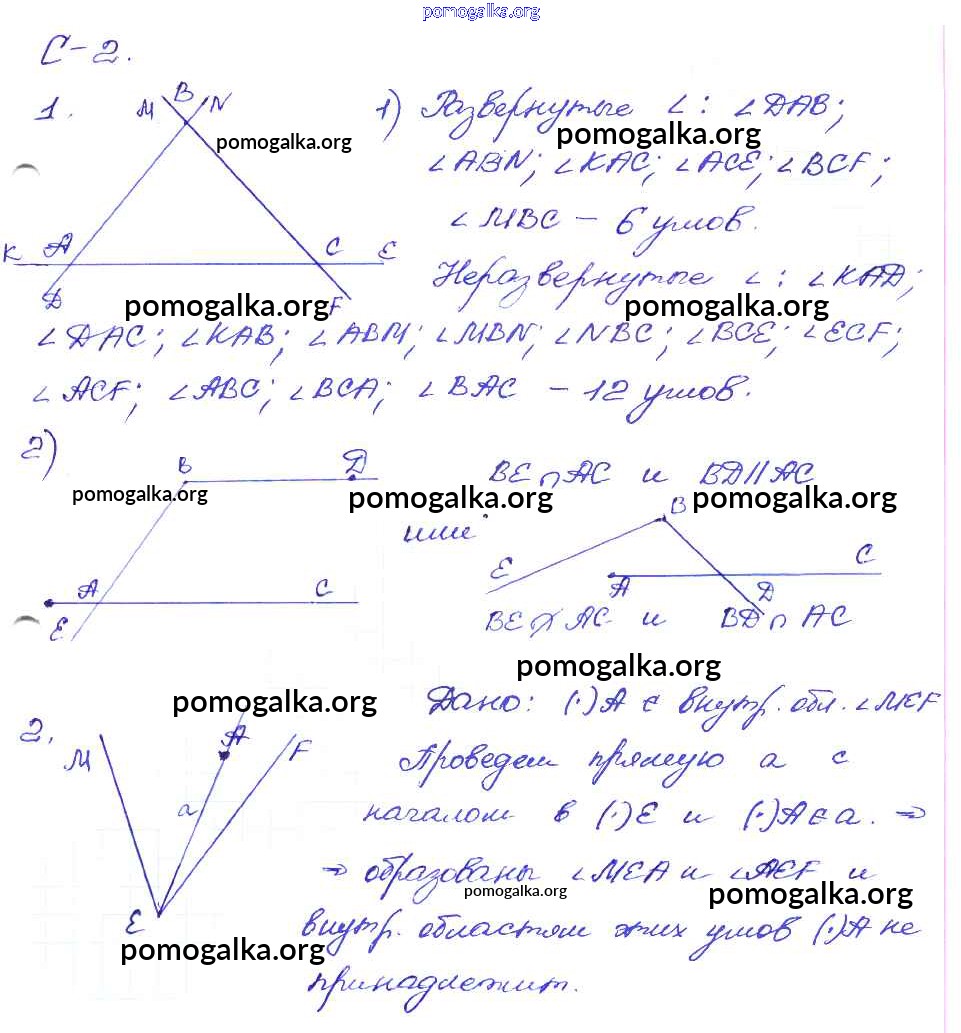 pomogalka.org
С-2.
1. М В N 1) Развернутые ∠: ∠DAB;
pomogalka.org pomogalka.org
∠ABN; ∠KAC; ∠ACE; ∠BCF;
∠MBC – 6 углов.
К А С Е
Неразвернутые ∠: ∠KAD;
D F
pomogalka.org pomogalka.org
∠DAC; ∠KAB; ∠ABM; ∠MBN; ∠NBC; ∠BCE; ∠ECF;
∠ACF; ∠ABC; ∠BCA; ∠BAC – 12 углов.
2)
B D BE∩AC и BD||AC
pomogalka.org pomogalka.org pomogalka.org
или B
E C
A C A D
E BE∩̸AC и BD∩AC
pomogalka.org
pomogalka.org Дано: (·)A ∈ внутр. обл. ∠MEF
2. M A F
Проведем прямую a с
a началом в (·)E и (·)A∈a. ⇒
⇒ образованы ∠MEA и ∠AEF и
pomogalka.org pomogalka.org
E внутр. областям этих углов (·)A не
pomogalka.org
принадлежит.